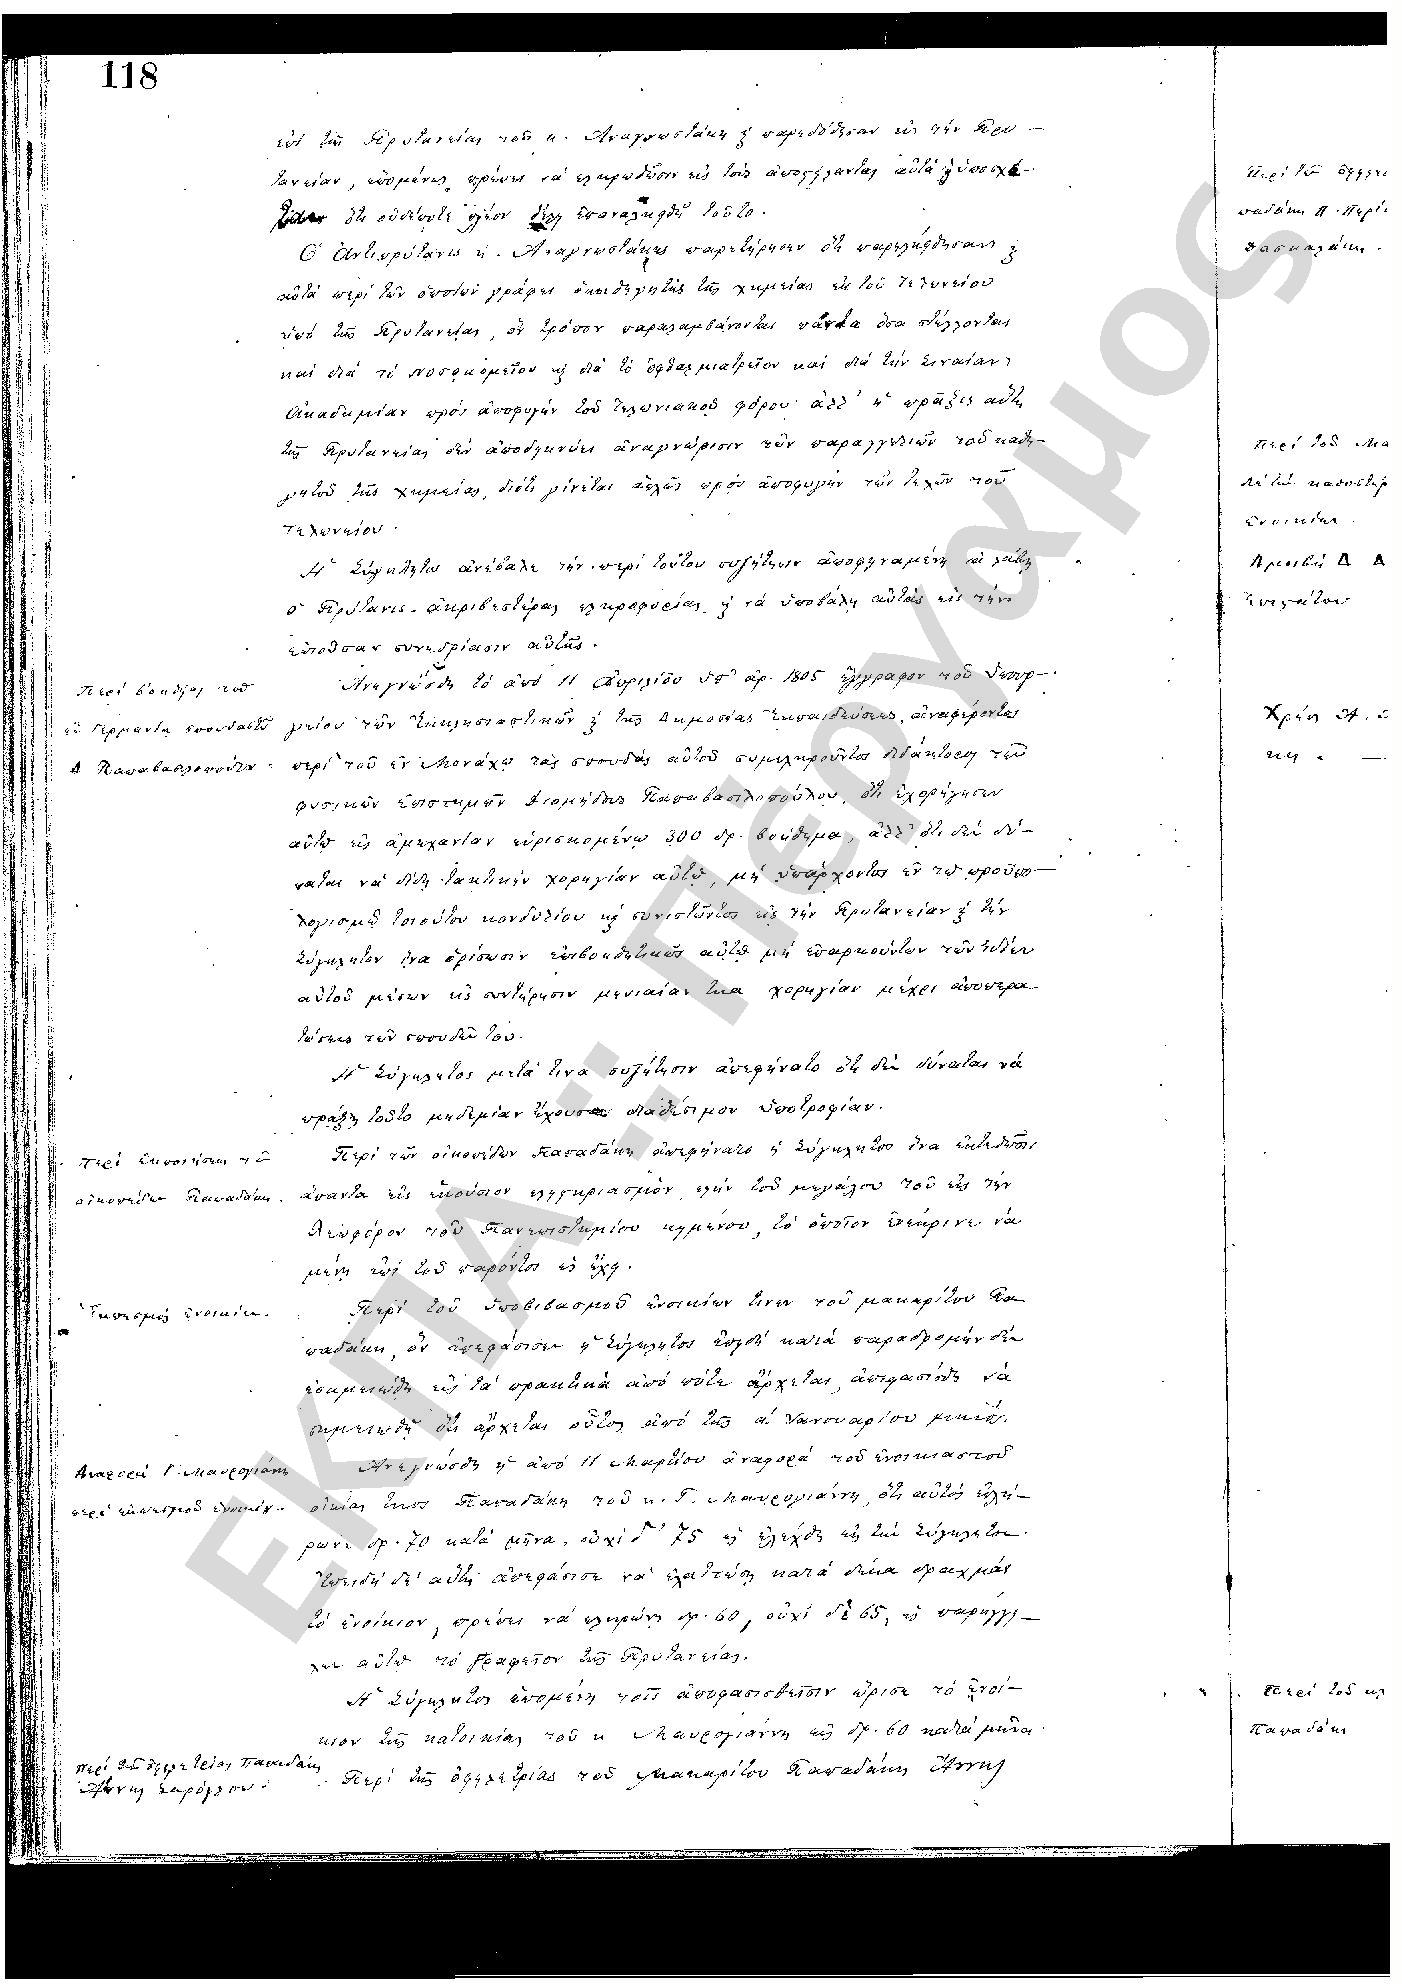 118
ἐπὶ τῆς Πρυτανείας τοῦ κ. Ἀναγνωστάκη ϗ παρεδόθησαν εἰς τὴν Πρυ-
τανείαν, ἑπομένως πρέπει νὰ πληρωθῶσιν εἰς τοὺς ἀποστείλαντας αὐτὰ ϗ
ὅτι οὐδέποτε πλέον θέλει ἐπαναληφθῆ τοῦτο.
Ὁ Ἀντιπρύτανις κ. Ἀναγνωστάκης παρετήρησεν ὅτι παρελήφθησαν ϗ
αὐτὰ περὶ τῶν ὁποίων γράφει ὁ καθηγητὴς τῆς χημείας ἐκ τοῦ Τελωνείου
ὑπὸ τῆς Πρυτανείας, ὃν τρόπον παραλαμβάνονται πάντα ὅσα στέλλονται
καὶ διὰ τὸ Νοσοκομεῖον ϗ διὰ τὸ ὀφθαλμιατρεῖον καὶ διὰ τὴν Σιναίαν
Ἀκαδημίαν πρὸς ἀποφυγὴν τοῦ τελωνιακοῦ φόρου· ἀλλ' ἡ πρᾶξις αὕτη
τῆς Πρυτανείας δὲν ἀποδεικνύει ἀναγνώρισιν τῶν παραγγελιῶν τοῦ καθη-
γητοῦ τῆς χημείας, διότι γίνεται ἁπλῶς πρὸς ἀποφυγὴν τῶν τελῶν τοῦ
τελωνείου.
Ἡ Σύγκλητος ἀνέβαλε τὴν περὶ τούτου συζήτησιν ἀποφηναμένη νὰ λάβῃ
ὁ Πρύτανις ἀκριβεστέρας πληροφορίας ϗ νὰ ὑποβάλῃ αὐτὰς εἰς τὴν
ἐπιοῦσαν συνεδρίασιν αὐτῆς.
Περὶ βοηθείας τοῦ
ἐν Γερμανίᾳ σπουδαστοῦ
Δ Παπαβασιλοπούλου.
Ἀνεγνώσθη τὸ ἀπὸ 11 Ἀπριλίου ὑπ' ἀρ. 1805 ἔγγραφον τοῦ Ὑπουρ-
γείου τῶν Ἐκκλησιαστικῶν ϗ τῆς Δημοσίας Ἐκπαιδεύσεως, ἀναφέροντος
περὶ τοῦ ἐν Μονάχῳ τὰς σπουδὰς αὐτοῦ συμπληροῦντος διδάκτορος τῶν
φυσικῶν ἐπιστημῶν Διομήδους Παπαβασιλοπούλου, ὅτι ἐχορήγησεν
αὐτῷ εἰς ἀμηχανίαν εὑρισκομένῳ 300 δρ. βοήθημα, ἀλλ' ὅτι δὲν δύ-
ναται νὰ δίδῃ τακτικὴν χορηγίαν αὐτῷ, μὴ ὑπάρχοντος ἐν τῷ προϋπο-
λογισμῷ τοιούτου κονδυλίου ϗ συνιστῶντος εἰς τὴν Πρυτανείαν ϗ τὴν
Σύγκλητον ἵνα ὁρίσωσιν ἐπιβοηθητικῶς αὐτῷ μὴ ἐπαρκούντων τῶν ἰδίων
αὐτοῦ μέσων εἰς συντήρησιν μηνιαίαν τινα χορηγίαν μέχρι ἀποπερα-
τώσεως τῶν σπουδῶν του.
Ἡ Σύγκλητος μετὰ τινα συζήτησιν ἀπεφήνατο ὅτι δὲν δύναται νὰ
πράξῃ τοῦτο μηδεμίαν ἔχουσα διαθέσιμον ὑποτροφίαν.
Περὶ ἐκποιήσεως τῶν
οἰκοπέδων Παπαδάκη.
Περὶ τῶν οἰκοπέδων Παπαδάκη ἀπεφήνατο ἡ Σύγκλητος ἵνα ἐκτεθῶσιν
ἅπαντα εἰς ἑκούσιον πλειστηριασμὸν πλὴν τοῦ μεγάλου τοῦ εἰς τὴν
Λεωφόρον τοῦ Πανεπιστημίου κειμένου, τὸ ὁποῖον ἐνέκρινε νὰ
μένῃ ἐπὶ τοῦ παρόντος ὡς ἔχει.
Ἐκπεσμὸς ἐνοικίων.
Περὶ τοῦ ὑποβιβασμοῦ ἐνοικίων τινων τοῦ μακαρίτου Πα
παδάκη, ὃν ἀπεφάσισεν ἡ Σύγκλητος ἐπειδὴ κατὰ παραδρομὴν δὲν
ἐσημειώθη εἰς τὰ πρακτικὰ ἀπὸ πότε ἄρχεται, ἀπεφασίσθη νὰ
σημειωθῇ ὅτι ἄρχεται οὗτος ἀπὸ τῆς αʹ Ἰανουαρίου
Ἀναφορὰ Γ. Μαυρογιάννη
περὶ ἐκπεσμοῦ ἐνοικίου.
Ἀνεγνώσθη ἡ ἀπὸ 11 Μαρτίου ἀναφορὰ τοῦ ἐνοικιαστοῦ
οἰκίας τινος Παπαδάκη τοῦ κ. Γ. Μαυρογιάννη, ὅτι αὐτὸς ἐπλή-
ρωνε δρ. 70 κατὰ μῆνα, οὐχὶ δ' 75 ὡς ἐλέχθη εἰς τὴν Σύγκλητον.
Ἐπειδὴ δὲ αὕτη ἀπεφάσισε νὰ ἐλαττώσῃ κατὰ δέκα δραχμὰς
τὸ ἐνοίκιον, πρέπει νὰ πληρώνῃ δρ. 60, οὐχὶ δὲ 65, ὡς παρήγγει-
λεν αὐτῷ τὸ Γραφεῖον τῆς Πρυτανείας.
Ἡ Σύγκλητος ἑπομένη τοῖς ἀποφασισθεῖσιν ὥρισε τὸ ἐνοί-
κιον τῆς κατοικίας τοῦ κ Μαυρογιάννη εἰς δρ. 60 κατὰ μῆνα.
Περὶ τῆς ὀφειλετρίας Παπαδάκη
Ἄννης
Περὶ τῆς ὀφειλετρίας τοῦ Μακαρίτου Παπαδάκη Ἄννης
Περὶ τῶν
παδάκη Π. Περὶ
Δασκαλάκη.
Περὶ τοῦ Μα
ἐνοικίου.
Ἀμοιβὴ Δ Δ
Χρέη
Περὶ τοῦ κλ
Παπαδάκη
ΕΚΠΑ:: Περγαμος